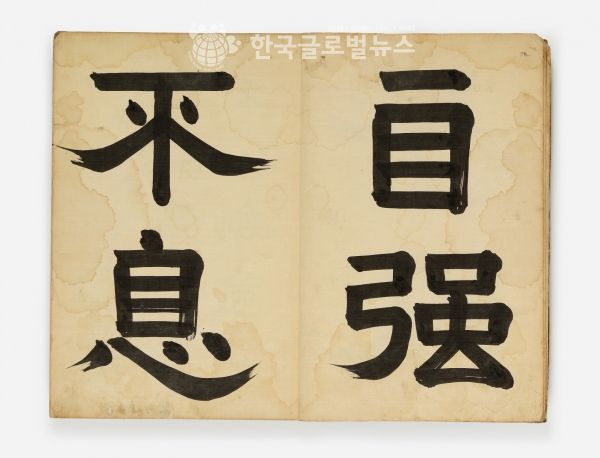 한국글로벌뉴스
自强
不息